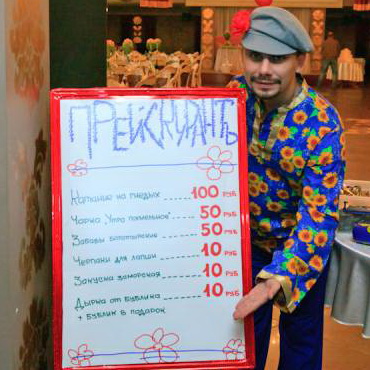 ПРЕЙСКУРАНТЪ
Катание на гнедых 100 РУБ
Чарка "Утро похмельное" 50 РУБ
Забавы богатырские 50 РУБ
Черпаки для лапши 10 РУБ
Закуска заморская 10 РУБ
Дырка от бублика 10 РУБ
+ бублик в подарок